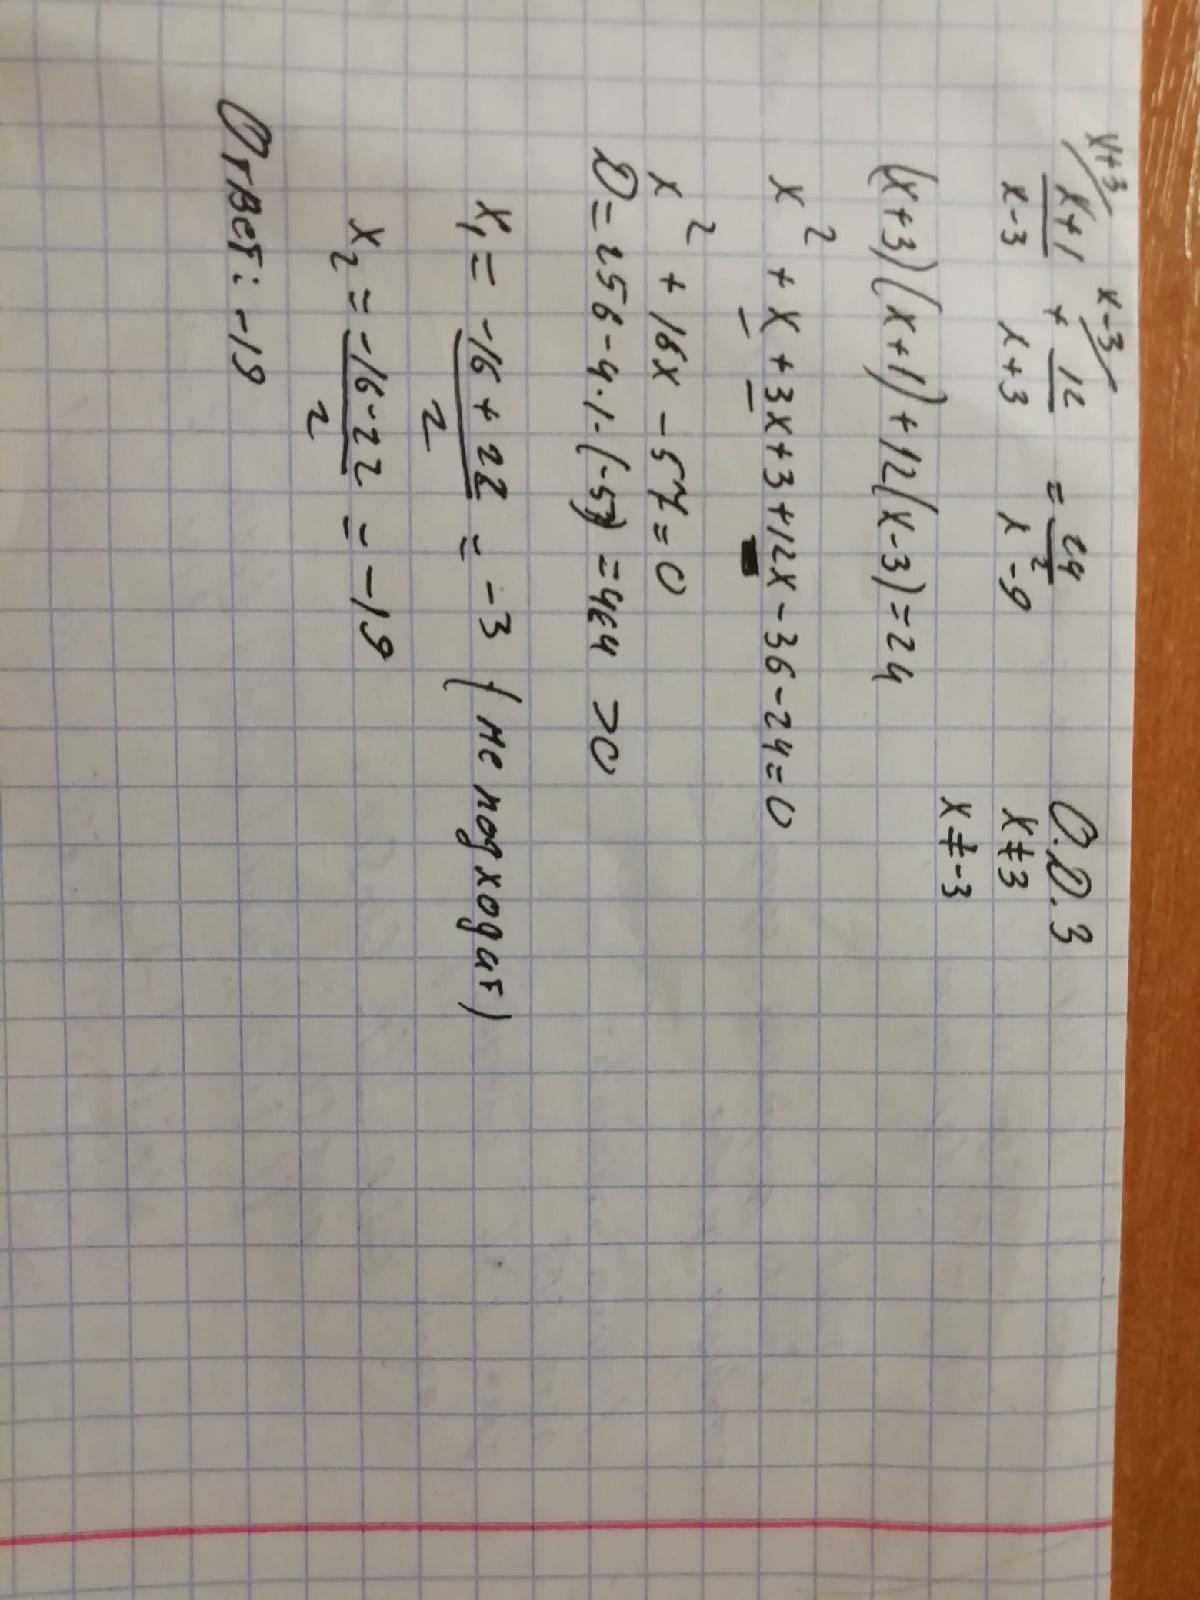 x+3/ x-3/
x+1/x-3 + 12/x+3 = 24/x²-9 О.D.З
x≠3
x≠-3
(x+3)(x+1)+12(x-3)=24
x² + x + 3x+3+12x-36-24=0
x² + 16x - 57=0
D=256-4·1·(-57)=484 >0
x₁ = -16+22/2 = -3 (не подходит)
x₂ = -16-22/2 = -19
Ответ: -19